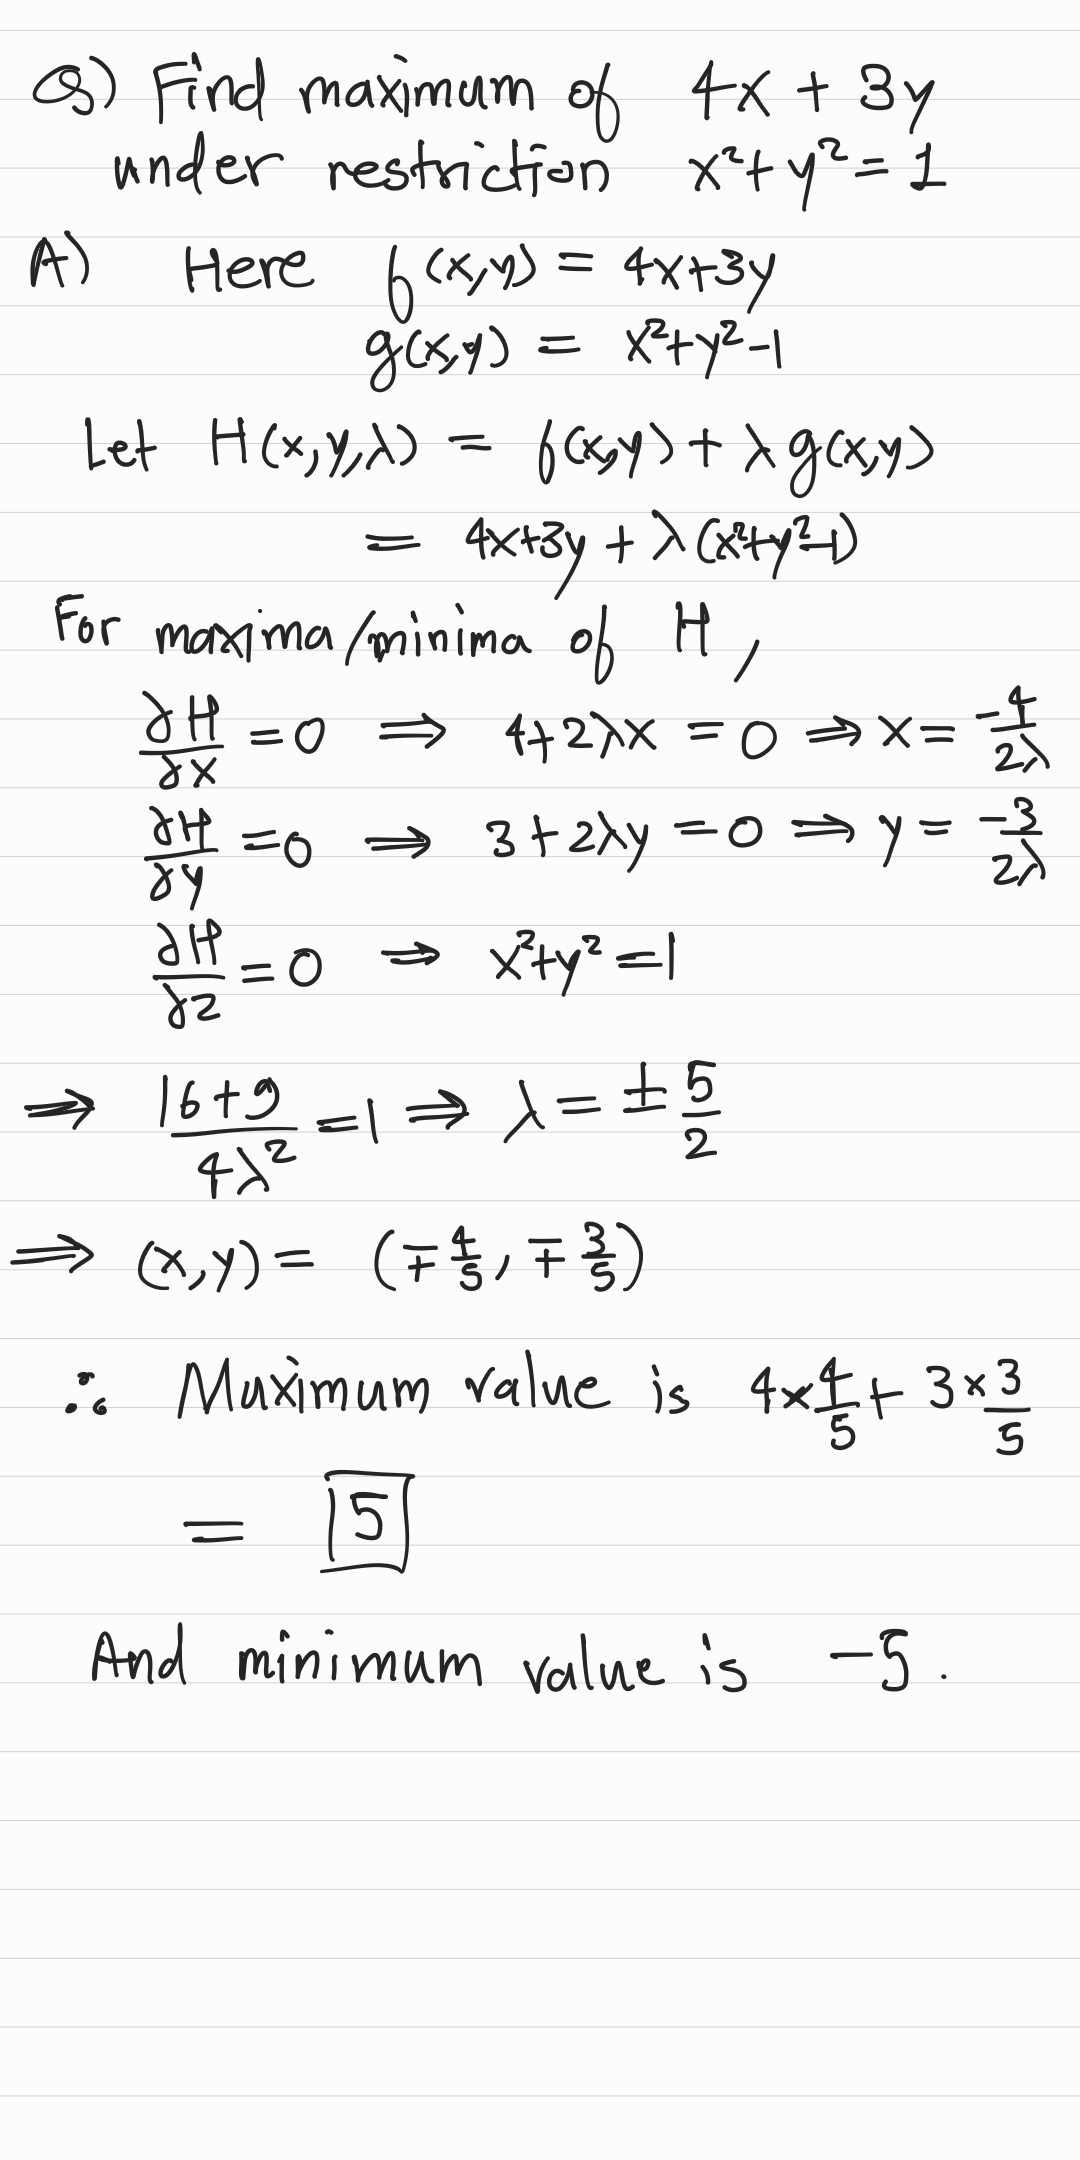 Q) Find maximum of 4x + 3y
under restriction x² + y² = 1
A) Here f(x,y) = 4x+3y
g(x,y) = x²+y²-1
Let H(x,y,λ) = f(x,y) + λg(x,y)
= 4x+3y + λ(x²+y²-1)
For maxima/minima of H,
∂H/∂x = 0 ⇒ 4+2λx = 0 ⇒ x = -4/2λ
∂H/∂y = 0 ⇒ 3+2λy = 0 ⇒ y = -3/2λ
∂H/∂z = 0 ⇒ x²+y² = 1
⇒ (16+9)/4λ² = 1 ⇒ λ = ± 5/2
⇒ (x,y) = (∓4/5, ∓3/5)
∴ Maximum value is 4×4/5 + 3×3/5
= 5
And minimum value is -5.